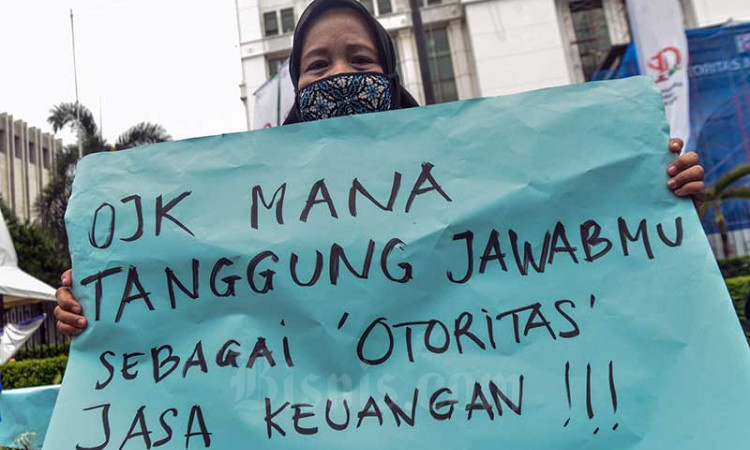 OJK MANA
TANGGUNG JAWABMU
SEBAGAI 'OTORITAS'
JASA KEUANGAN !!!
Bisnis.com